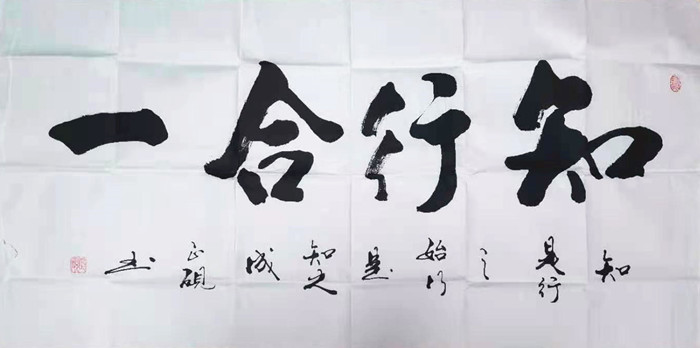 知行合一
知是行之始行是知之成
正硯书